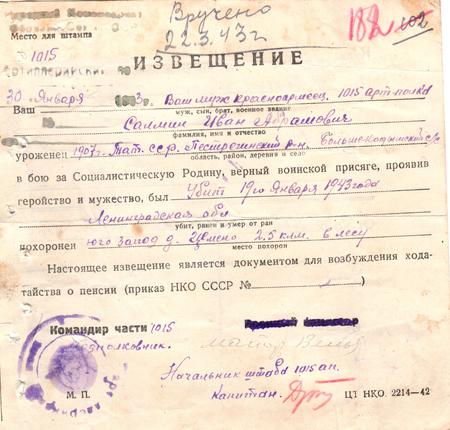 Вручено
22.3.43г.
182 102
Место для штампа
1015
ИЗВЕЩЕНИЕ
30 Января
Ваш муж красноармеец 1015 арт полка
Ваш
муж, сын, брат, военное звание
Салмин Иван Абрамович
фамилия, имя и отчество
уроженец 1907г. Тат. сс.р. Пестречинский р-н.
область, район, деревня и село
в бою за Социалистическую Родину, верный воинской присяге, проявив
геройство и мужество, был Убит 19го Января 1943 года
Ленинградская обл
убит, ранен и умер от ран
похоронен юго запад д. 2,5 клм. в лесу
место похорон
Настоящее извещение является документом для возбуждения хода-
тайства о пенсии (приказ НКО СССР №
Командир части 1015
подполковник. майор
Начальник штаба 1015 ап.
капитан.
М. П.
ЦТ НКО. 2214—42